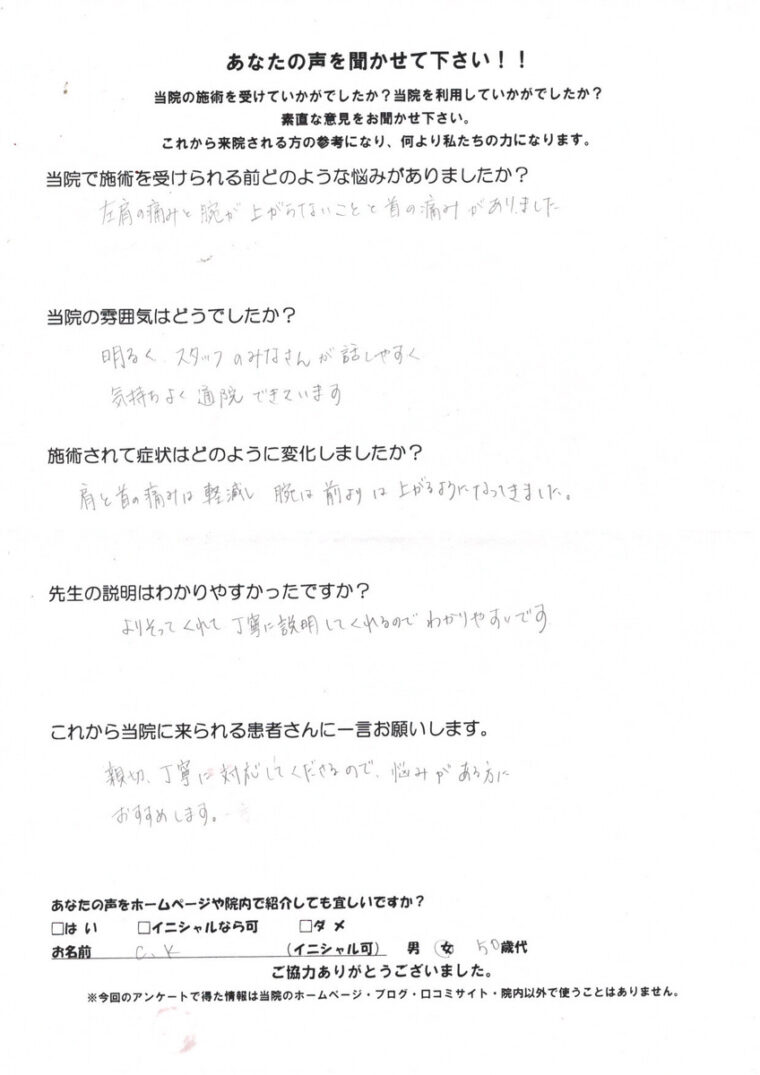 あなたの声を聞かせて下さい！！
当院の施術を受けていかがでしたか？当院を利用していかがでしたか？
素直な意見をお聞かせ下さい。
これから来院される方の参考になり、何より私たちの力になります。
当院で施術を受けられる前どのような悩みがありましたか？
左肩の痛みと腕が上がらないことと首の痛みがありました
当院の雰囲気はどうでしたか？
明るく、スタッフのみなさんが話しやすく
気持ちよく通院できています
施術されて症状はどのように変化しましたか？
肩と首の痛みは軽減し 腕は前よりは上がるようになってきました。
先生の説明はわかりやすかったですか？
よりそってくれて丁寧に説明してくれるのでわかりやすいです
これから当院に来られる患者さんに一言お願いします。
親切、丁寧に対応してくださるので、悩みがある方に
おすすめします。
あなたの声をホームページや院内で紹介しても宜しいですか？
□はい □イニシャルなら可 □ダメ
お名前 C、K （イニシャル可） 男 女 50歳代
ご協力ありがとうございました。
※今回のアンケートで得た情報は当院のホームページ・ブログ・口コミサイト・院内以外で使うことはありません。